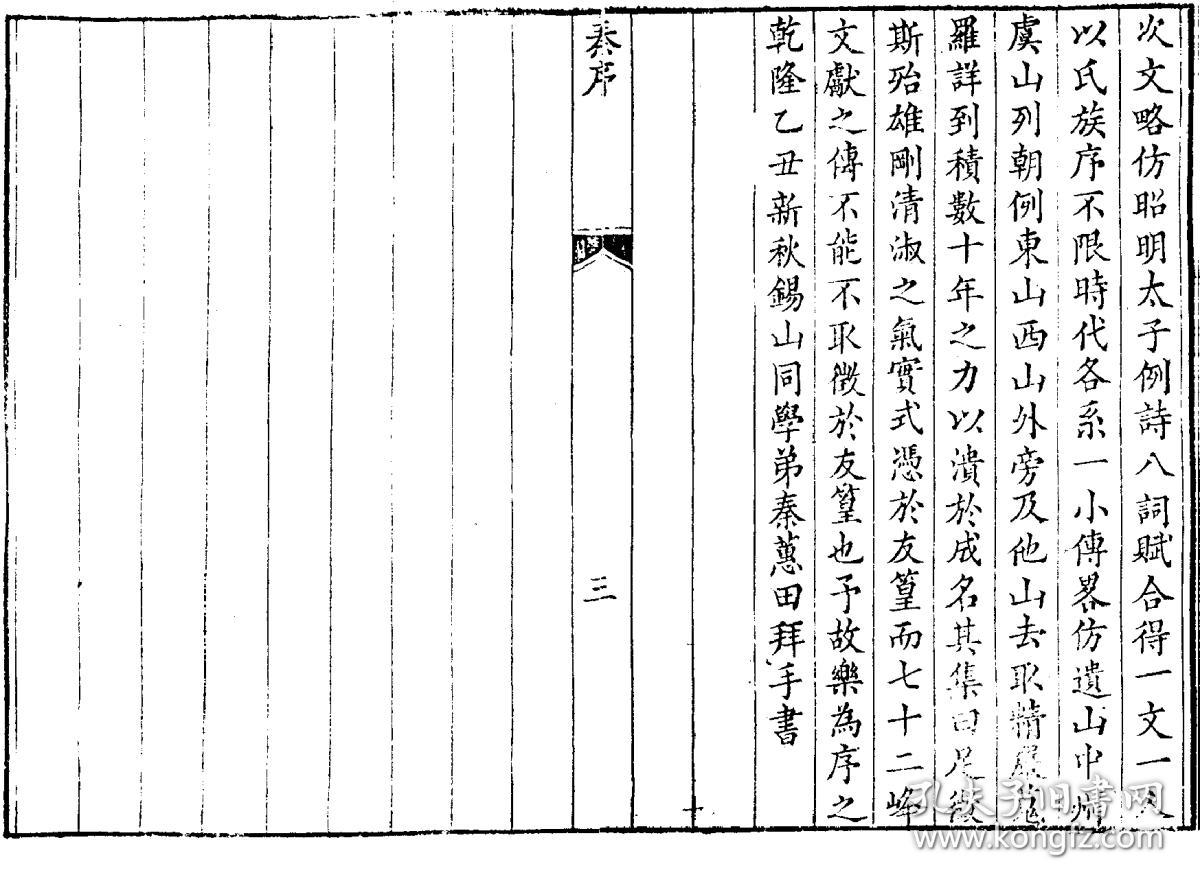 次文略仿昭明太子例詩八詞賦合得一文一人
以氏族序不限時代各系一小傳畧仿遺山中州
虞山列朝例東山西山外旁及他山去取精嚴蒐
羅詳到積數十年之力以潰於成名其集曰足徵
斯殆雄剛清淑之氣實式憑於友篁而七十二峰
文獻之傳不能不取徵於友篁也予故樂為序之
乾隆乙丑新秋錫山同學弟秦蕙田拜手書
秦序
三
孔夫子旧書网
www.kongfz.com